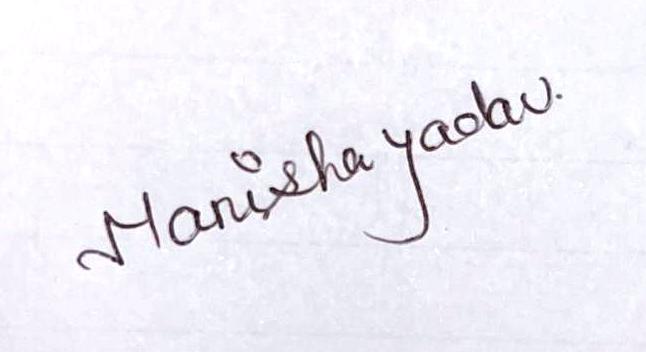 Manisha yadav.